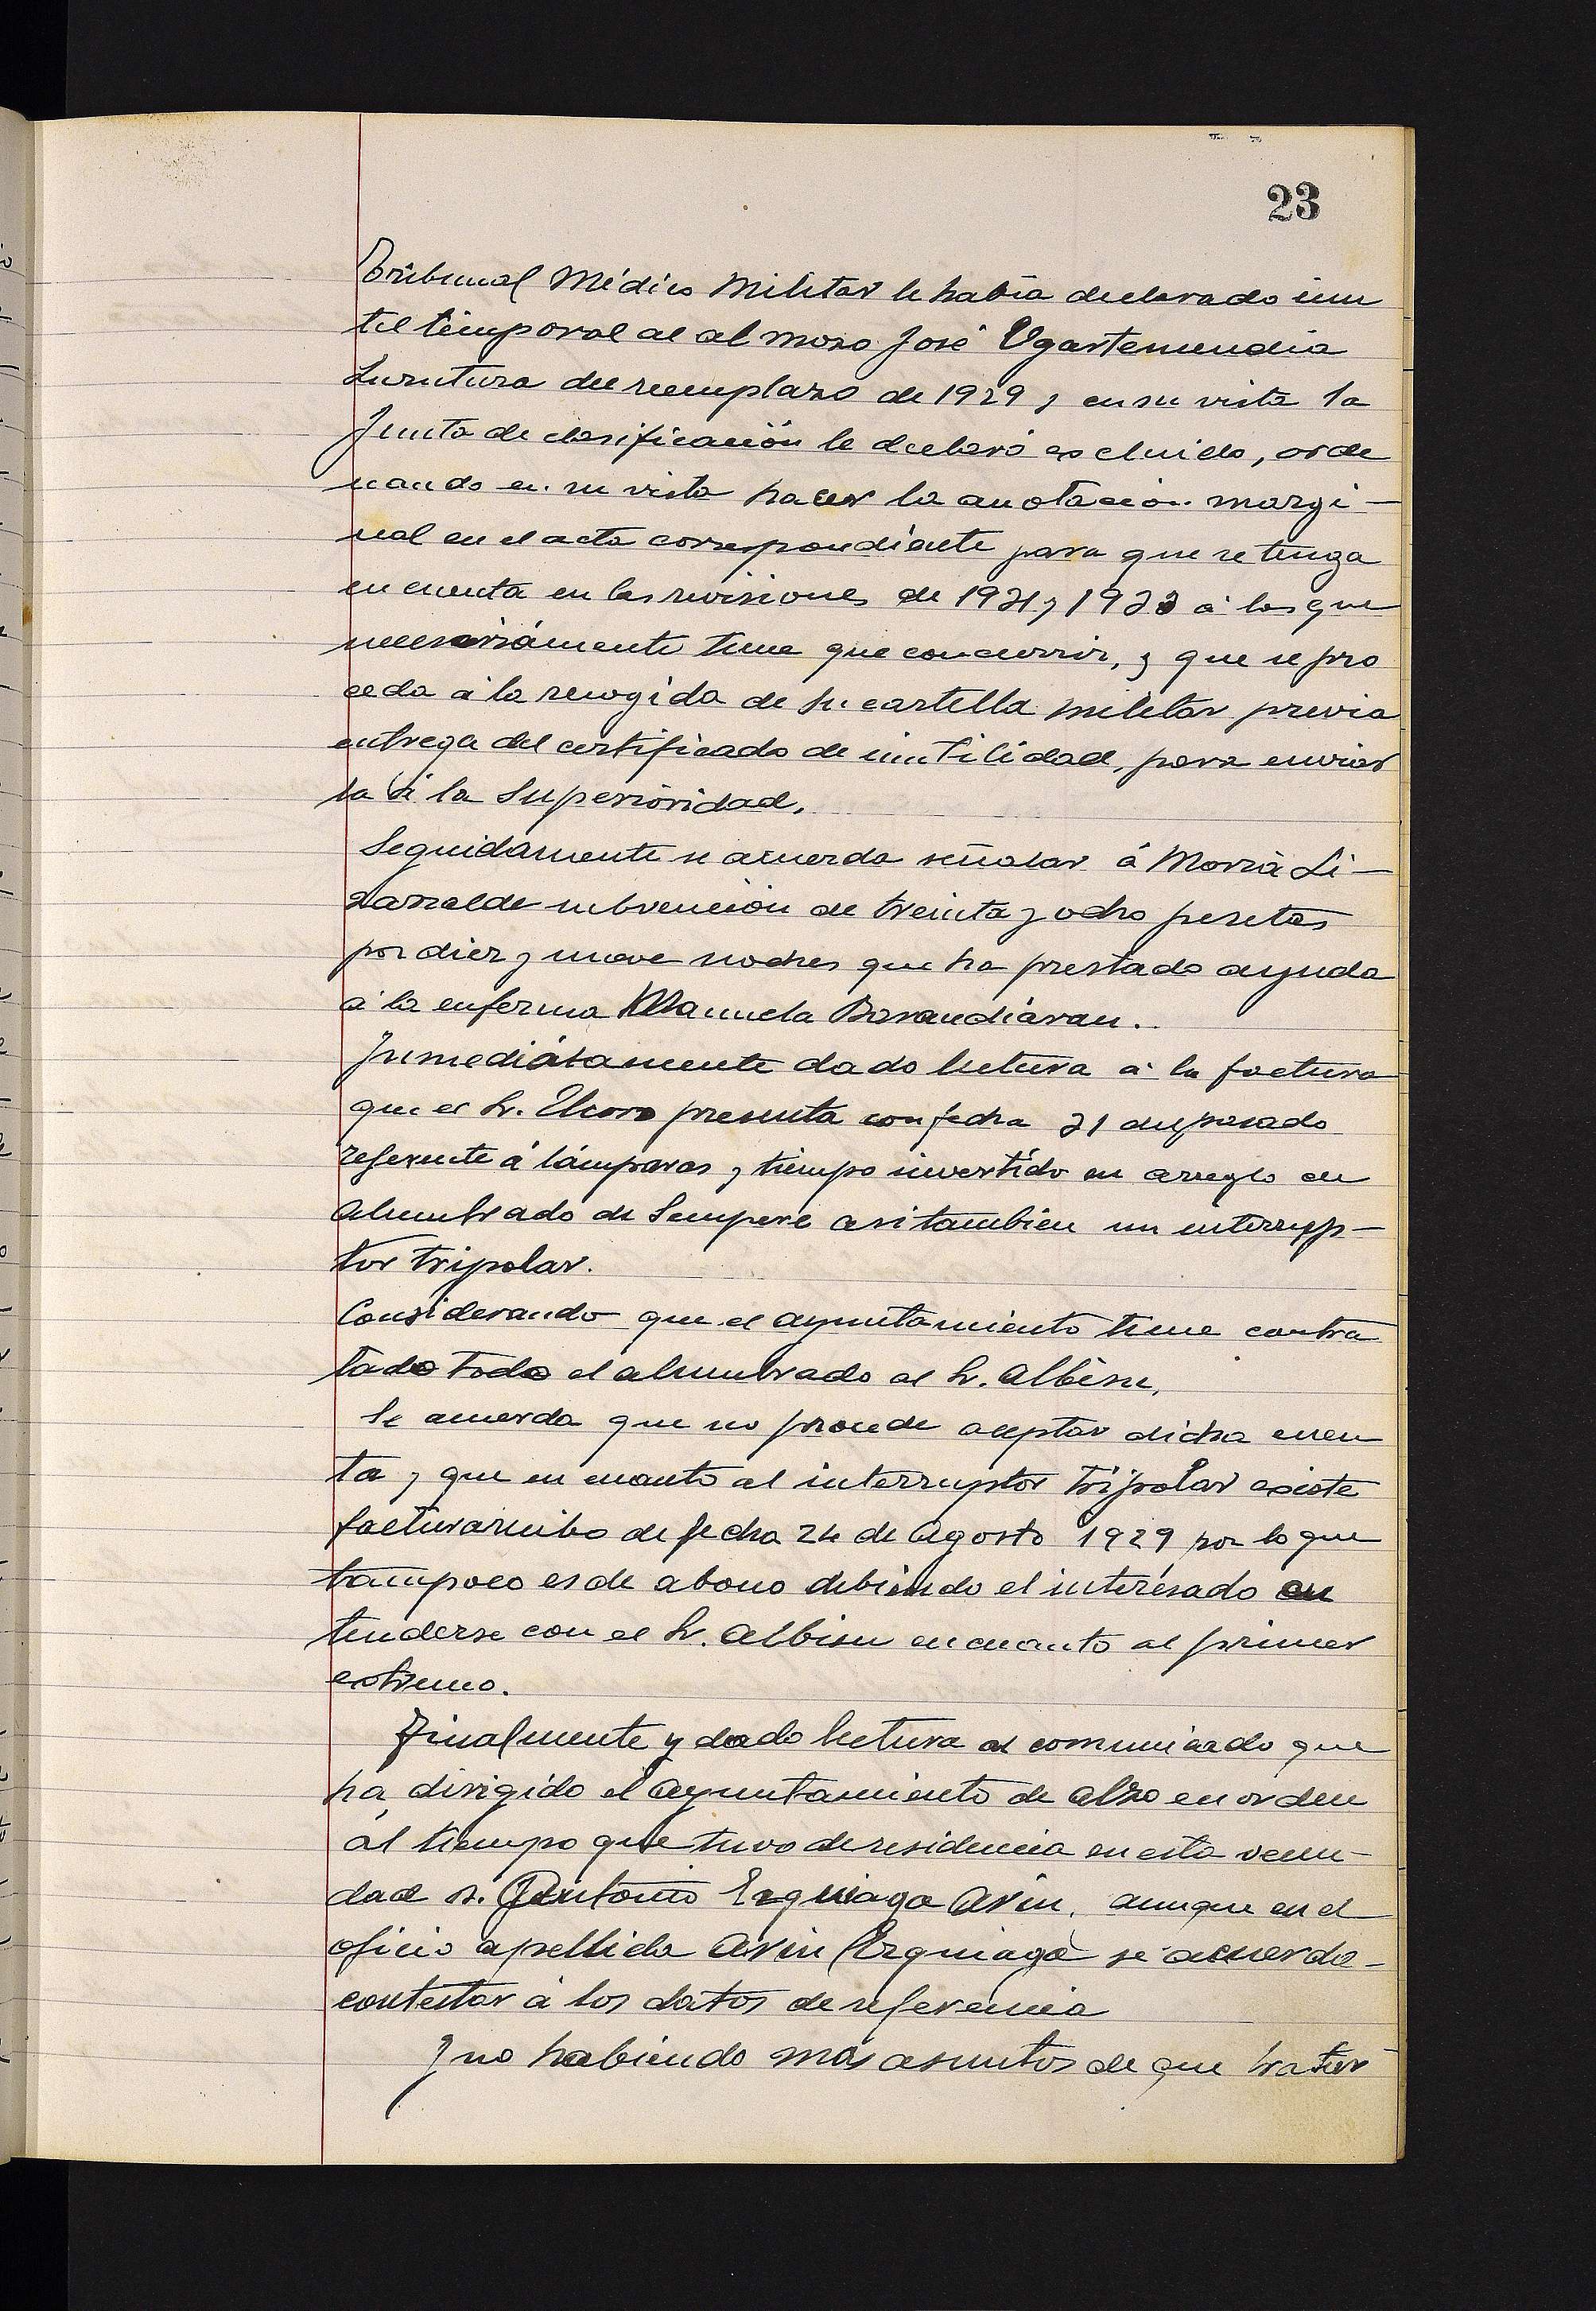 23
Tribunal Médico Militar le había declarado inu
til temporal al al mozo José Ugartemendia
Zurutuza del reemplazo de 1929 y en su vista la
Junta de clasificación le declaró excluido, orde
nando en su vista hacer la anotación margi-
nal en el acta correspondiente para que se tenga
en cuenta en las revisiones de 1931 y 1933 á las que
necesariámente tiene que concurrir, y que se pro
ceda á la recogida de su cartilla militar previa
entrega del certificado de inutilidad, para enviar
la á la Superioridad.
Seguidamente se acuerda señalar á María Li-
zarralde subvención de treinta y ocho pesetas
por diez y nueve noches que ha prestado ayuda
á la enferma Manuela Barandiáran.
Inmediátamente dado lectura á la factura
que el Sr. Elcoro presenta con fecha 31 del pasado
referente á lámparas y tiempo invertido en arreglo del
alumbrado de Sempere asi tambien un interrup-
tor tripolar.
Considerando que el ayuntamiento tiene contra
tado todo el alumbrado al Sr. Albisu,
Se acuerda que no procede aceptar dicha cuen
ta y que en cuanto al interruptor tripolar existe
factura recibo de fecha 24 de Agosto 1929 por lo que
tampoco es de abono debiendo el interesado en
tenderse con el Sr. Albisu en cuanto al primer
extremo.
Finalmente y dado lectura al comunicado que
ha dirigido el ayuntamiento de Alzo en orden
al tiempo que tuvo de residencia en esta vecin-
dad D. Antonio Ezquiaga Arin, aunque en el
oficio apellida Arin Ezquiaga se acuerda
contestar á los datos de referencia
Y no habiendo más asuntos de que tratar